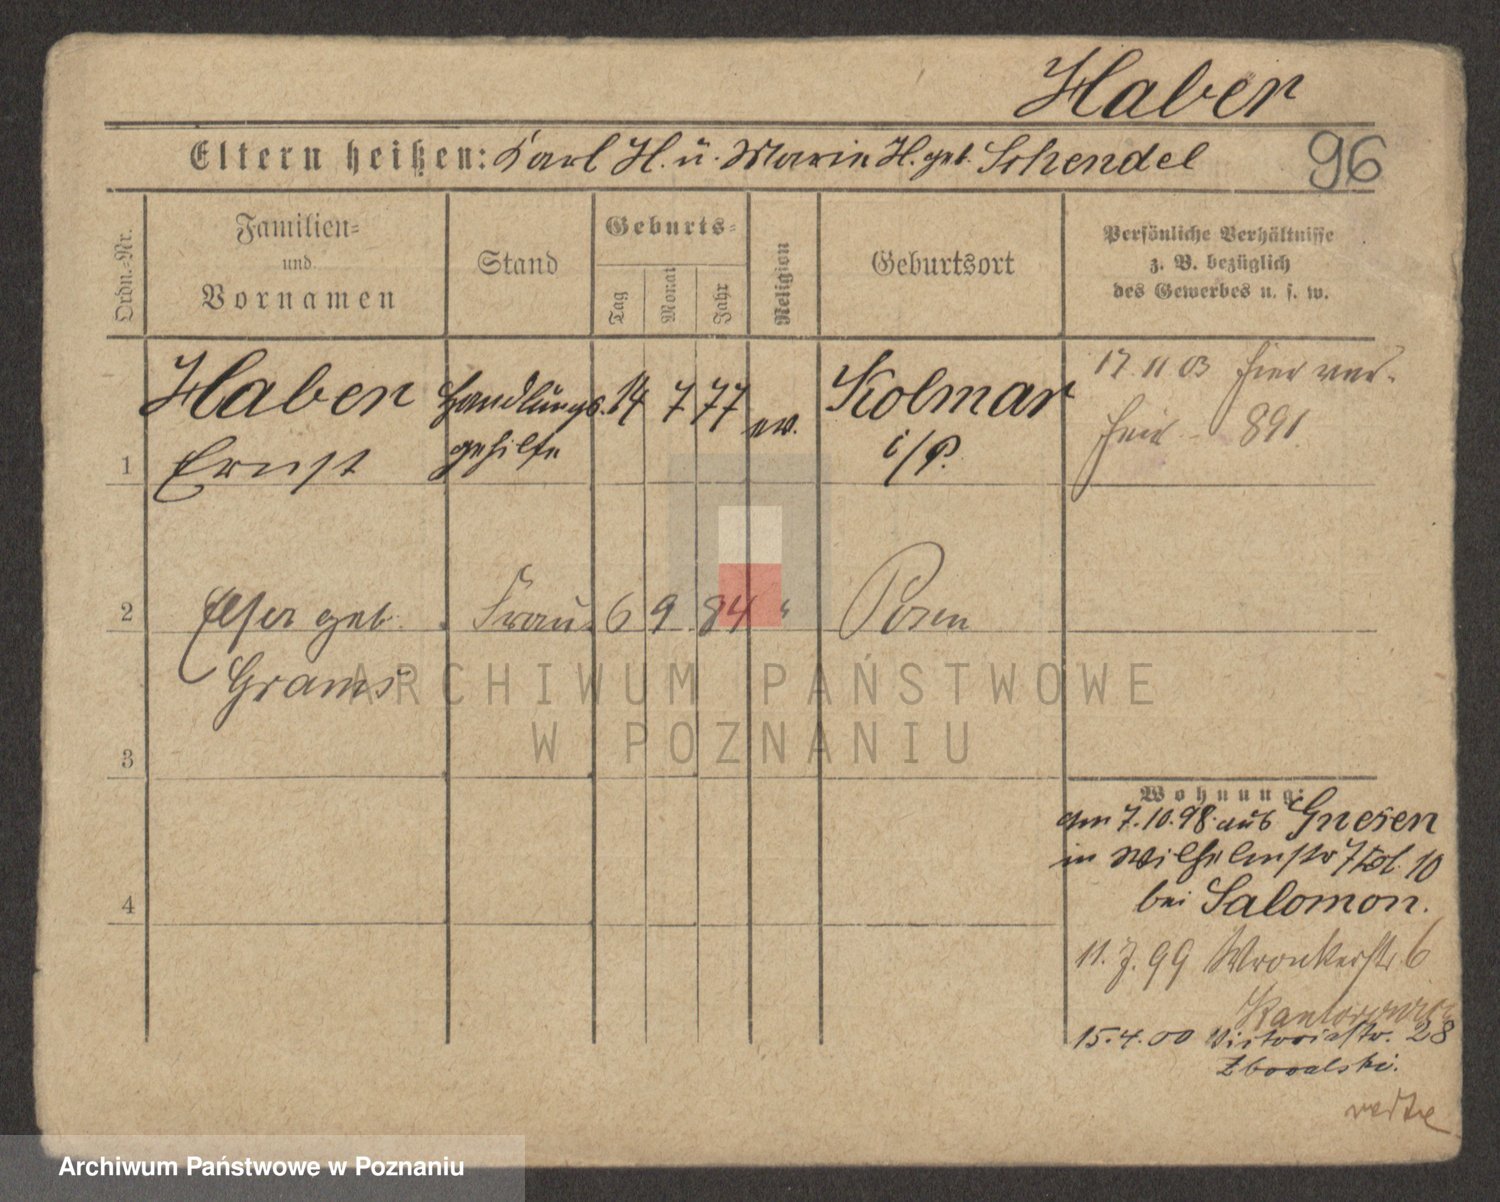 Haber
Eltern heißen: Karl H. u. Marie H. geb. Schendel
96
Ordn.-Nr.
Familien-
und
Vornamen
Stand
Geburts-
Tag
Monat
Jahr
Religion
Geburtsort
Persönliche Verhältnisse
z. B. bezüglich
des Gewerbes u. s. w.
1
Haber
Ernst
Handlungs-
gehilfe
14 7 77
ev.
Kolmar
i/P.
17 11 03 hier ver-
heir. 891
2
Elsa geb.
Grams
Frau
6 9 84 "
Posen
3
4
Wohnung:
am 7.10.98 aus Gnesen
in Wilhelmstr 10
bei Salomon.
11. 7. 99 Wronkerstr. 6
Kantorowicz
15.4.00 Victoriastr. 28
ARCHIWUM PAŃSTWOWE
W POZNANIU
Archiwum Państwowe w Poznaniu